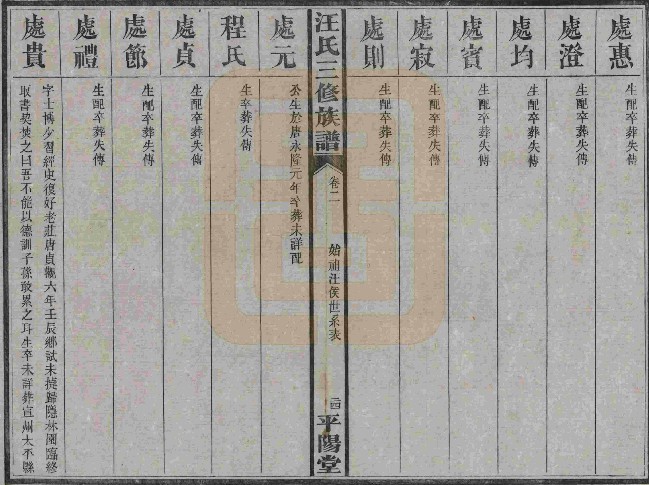 處惠
生配卒葬失傳
處澄
生配卒葬失傳
處均
生配卒葬失傳
處賓
生配卒葬失傳
處寂
生配卒葬失傳
處則
生配卒葬失傳
汪氏三修族譜
卷二
始祖汪侯世系表
二四
平陽堂
處元
公生於唐永隆元年卒葬未詳配
程氏
生卒葬失傳
處貞
生配卒葬失傳
處節
生配卒葬失傳
處禮
生配卒葬失傳
處貴
字士摛少習經史復好老莊唐貞觀六年壬辰鄉試未捷歸隱林園臨終
取書契焚之曰吾不能以德訓子孫敢累之耳生卒未詳葬宣州太平縣